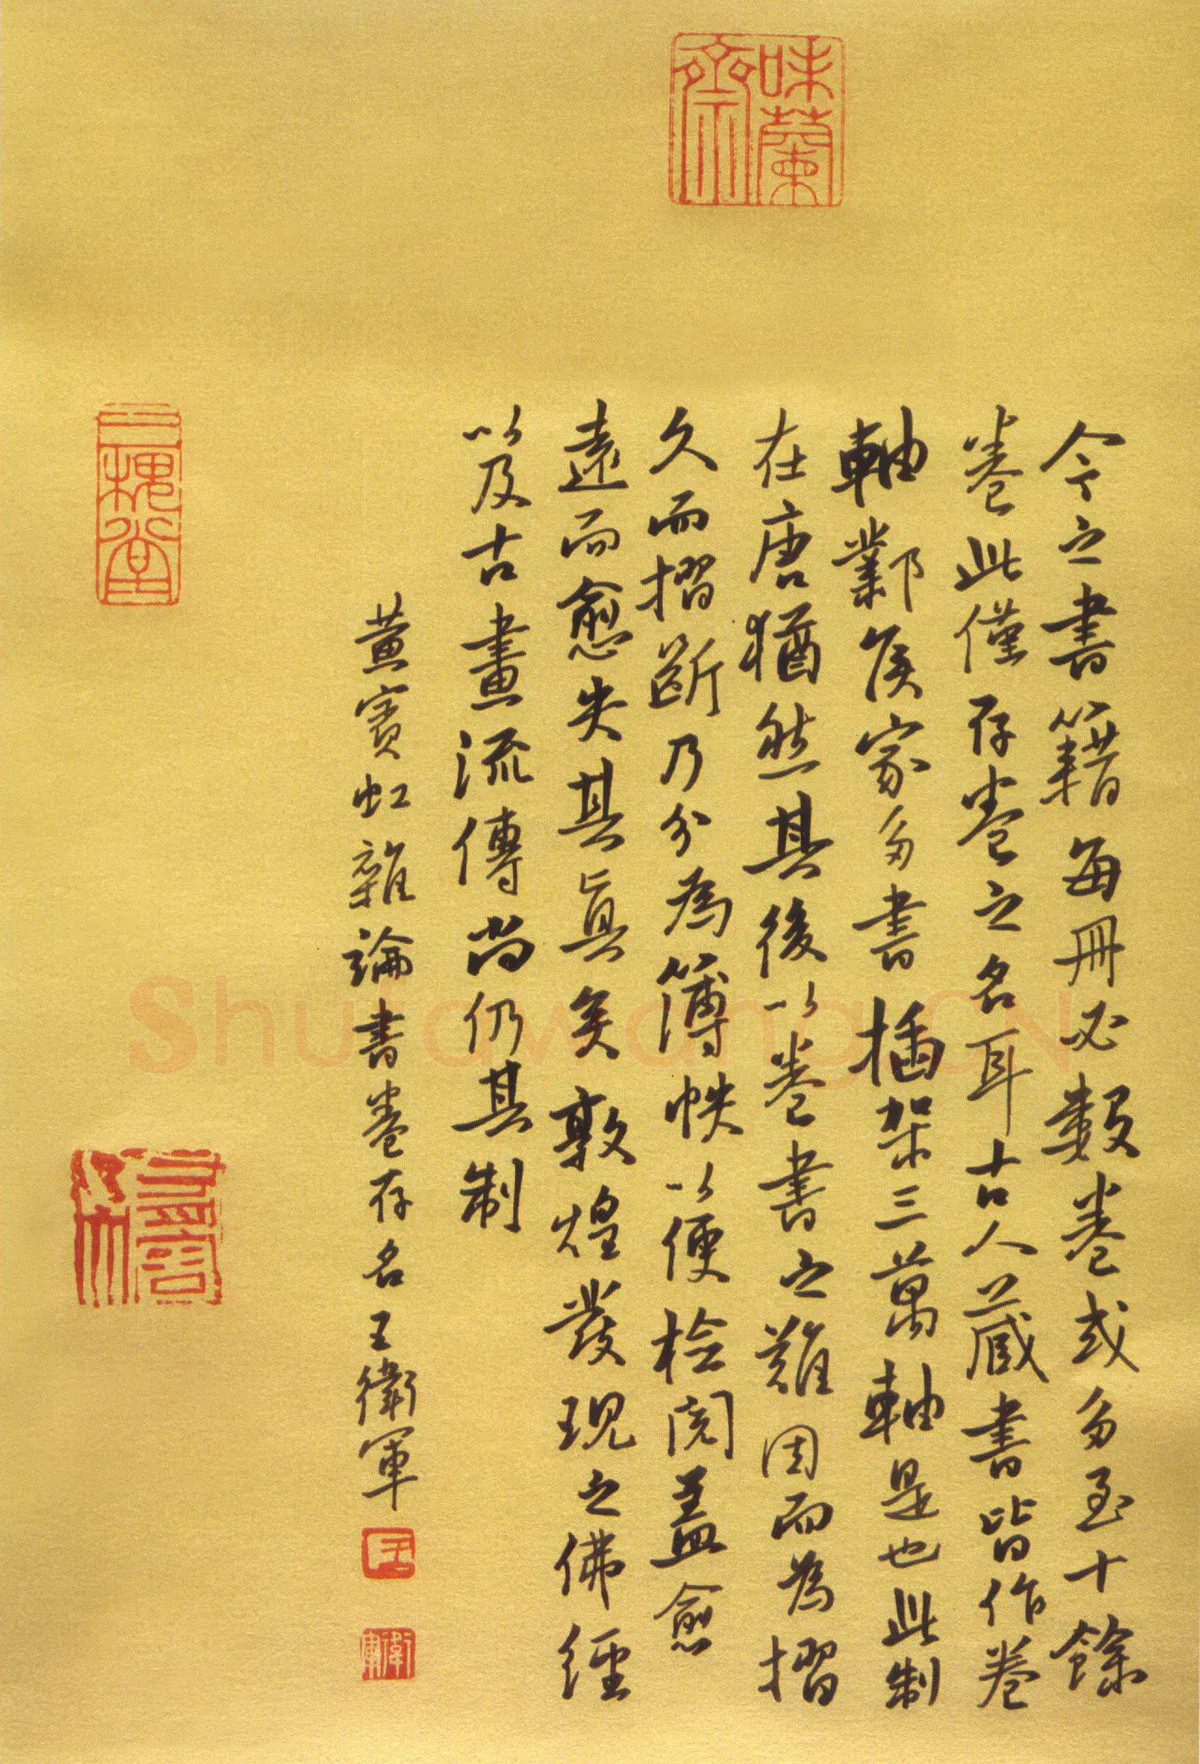 味蘭齋
今之書籍每冊必數卷或多至十餘
卷此僅存卷之名耳古人藏書皆作卷
軸鄴侯家多書插架三萬軸是也此制
在唐猶然其後以卷書之難因而為摺
久而摺斷乃分為簿帙以便檢閱蓋愈
遠而愈失其真矣敦煌發現之佛經
以及古畫流傳尚仍其制
黃賓虹雜論書卷存名王衛軍
王
衛軍
三槐堂
Shufawang.CN